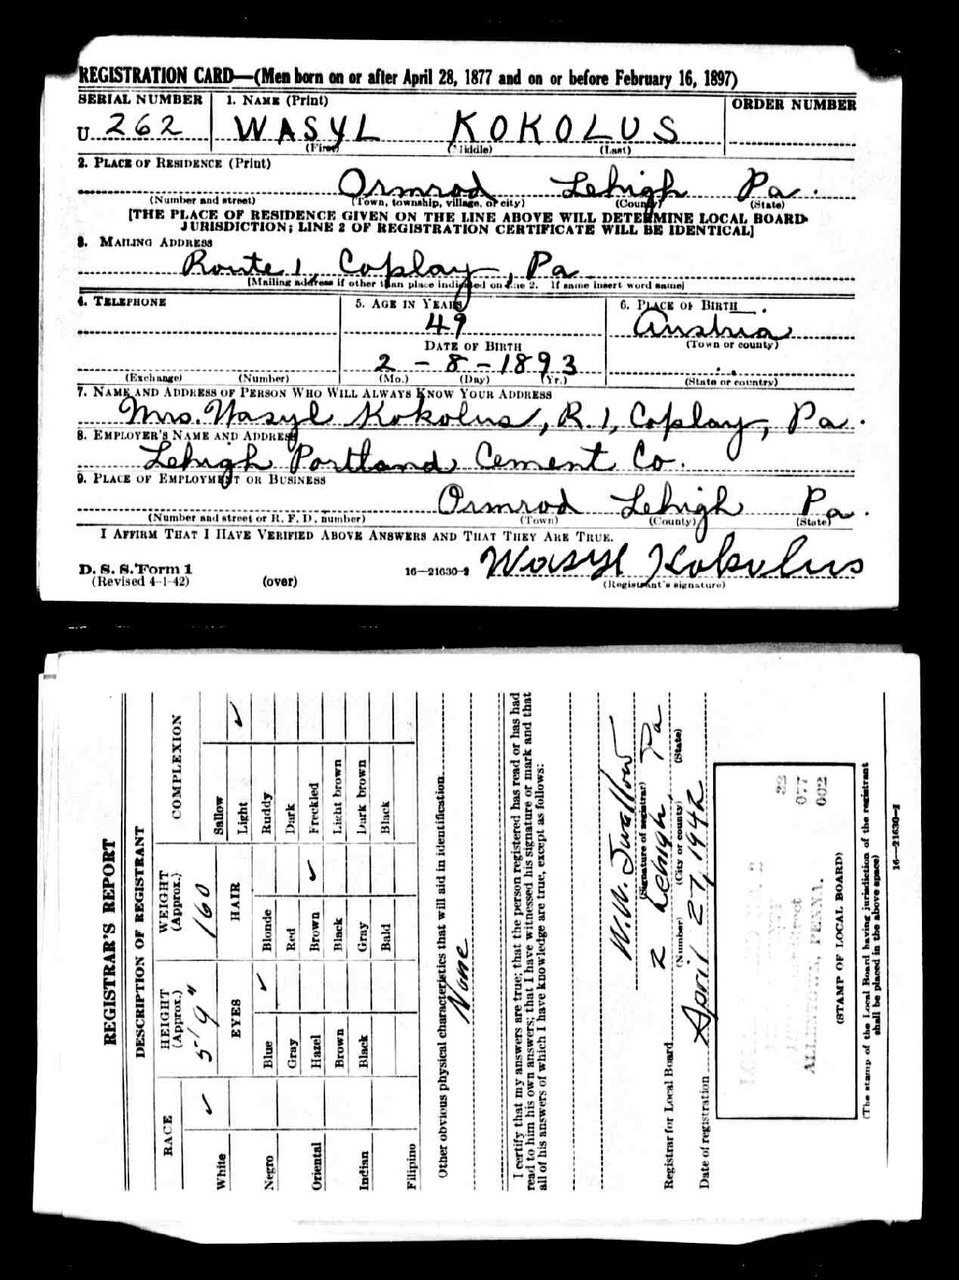 REGISTRATION CARD—(Men born on or after April 28, 1877 and on or before February 16, 1897)
SERIAL NUMBER 1. NAME (Print) ORDER NUMBER
U 262 WASYL KOKOLUS
(First) (Middle) (Last)
2. PLACE OF RESIDENCE (Print)
Ormrod Lehigh Pa.
(Number and street) (Town, township, village, or city) (County) (State)
[THE PLACE OF RESIDENCE GIVEN ON THE LINE ABOVE WILL DETERMINE LOCAL BOARD
JURISDICTION; LINE 2 OF REGISTRATION CERTIFICATE WILL BE IDENTICAL]
3. MAILING ADDRESS
Route 1, Coplay, Pa
[Mailing address if other than place indicated on line 2. If same insert word same]
4. TELEPHONE 5. AGE IN YEARS 6. PLACE OF BIRTH
49 Austria
DATE OF BIRTH (Town or county)
2 - 8 - 1893
(Exchange) (Number) (Mo.) (Day) (Yr.) (State or country)
7. NAME AND ADDRESS OF PERSON WHO WILL ALWAYS KNOW YOUR ADDRESS
Mrs. Wasyl Kokolus, R. 1, Coplay, Pa.
8. EMPLOYER'S NAME AND ADDRESS
Lehigh Portland Cement Co.
9. PLACE OF EMPLOYMENT OR BUSINESS
Ormrod Lehigh Pa.
(Number and street or R. F. D. number) (Town) (County) (State)
I AFFIRM THAT I HAVE VERIFIED ABOVE ANSWERS AND THAT THEY ARE TRUE.
D. S. S. Form 1 16—21630-2 Wasyl Kokolus
(Revised 4-1-42) (over) (Registrant's signature)
REGISTRAR'S REPORT
DESCRIPTION OF REGISTRANT
RACE HEIGHT (Approx.) WEIGHT (Approx.) COMPLEXION
5'9" 160
White ✓ Sallow
EYES HAIR Light ✓
Negro Blue ✓ Blonde Ruddy
Gray Red Dark
Oriental Hazel Brown ✓ Freckled
Brown Black Light brown
Indian Black Gray Dark brown
Bald Black
Filipino
Other obvious physical characteristics that will aid in identification
None
I certify that my answers are true; that the person registered has read or has had
read to him his own answers; that I have witnessed his signature or mark and that
all of his answers of which I have knowledge are true, except as follows:
W. W. Swallow
(Signature of registrar)
Registrar for Local Board 2 Lehigh Pa
(Number) (City or county) (State)
Date of registration April 27, 1942
22
077
002
ALLENTOWN, PENNA.
(STAMP OF LOCAL BOARD)
(The stamp of the Local Board having jurisdiction of the registrant
shall be placed in the above space)
16—21630-2